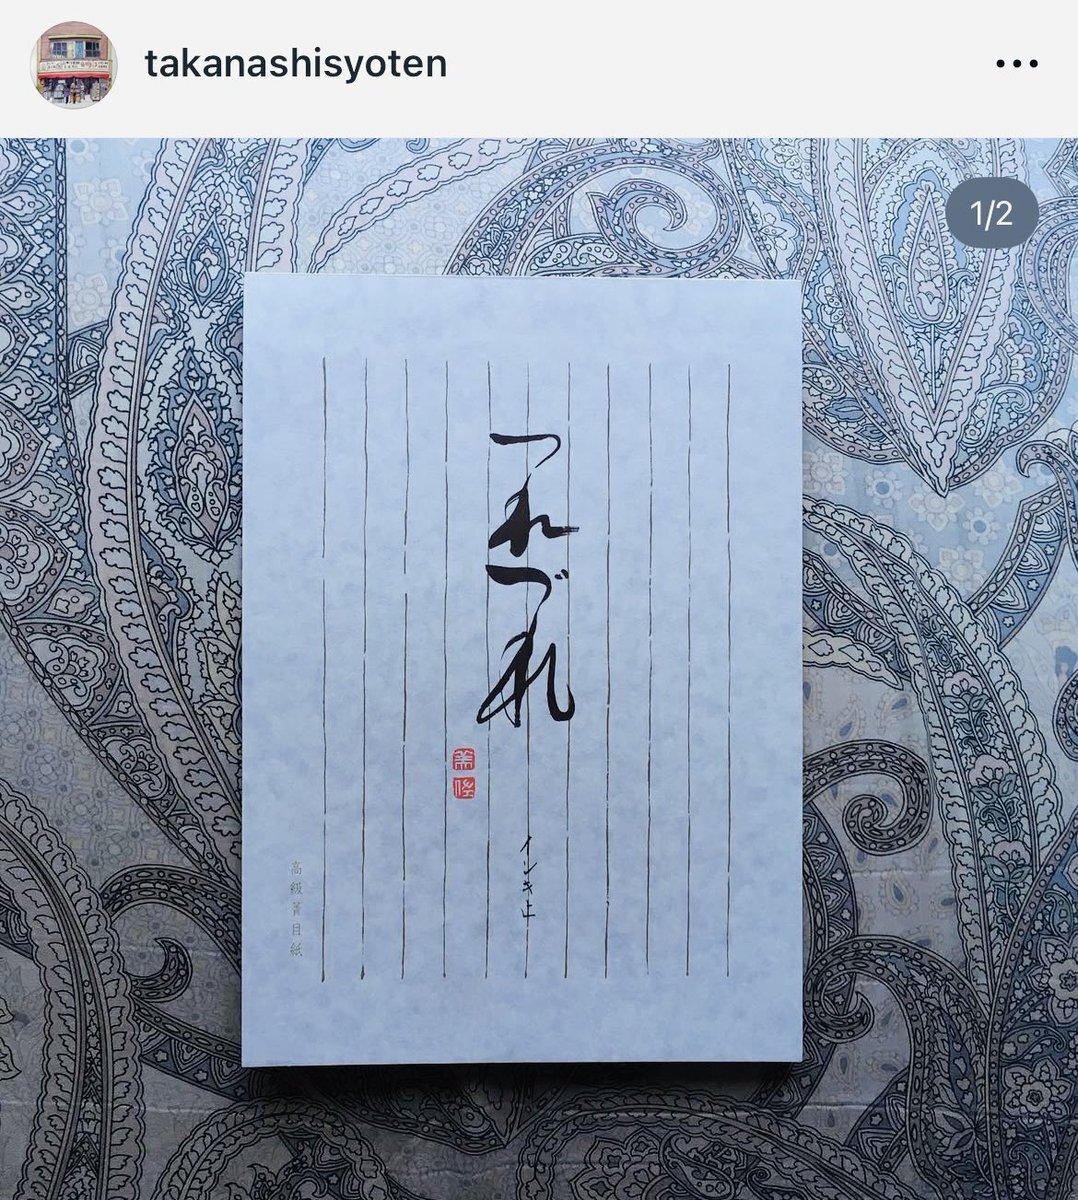 takanashisyoten
1/2
つれづれ
インキ止
高級菁目紙